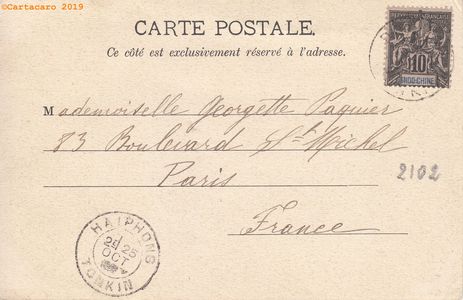 ©Cartacaro 2019
CARTE POSTALE.
Ce côté est exclusivement réservé à l'adresse.
RÉPUBLIQUE FRANÇAISE
10
INDO-CHINE
Mademoiselle Georgette Paquier
83 Boulevard St Michel
Paris
France
2102
HAIPHONG
25
OCT
TONKIN